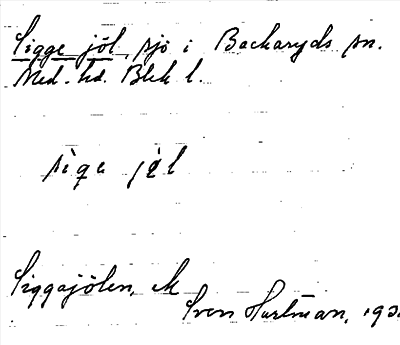 Sigge jöl, sjö i Backaryds sn.
Med. hd. Blek l.
Siggajölen, M
Sven Hartman, 193